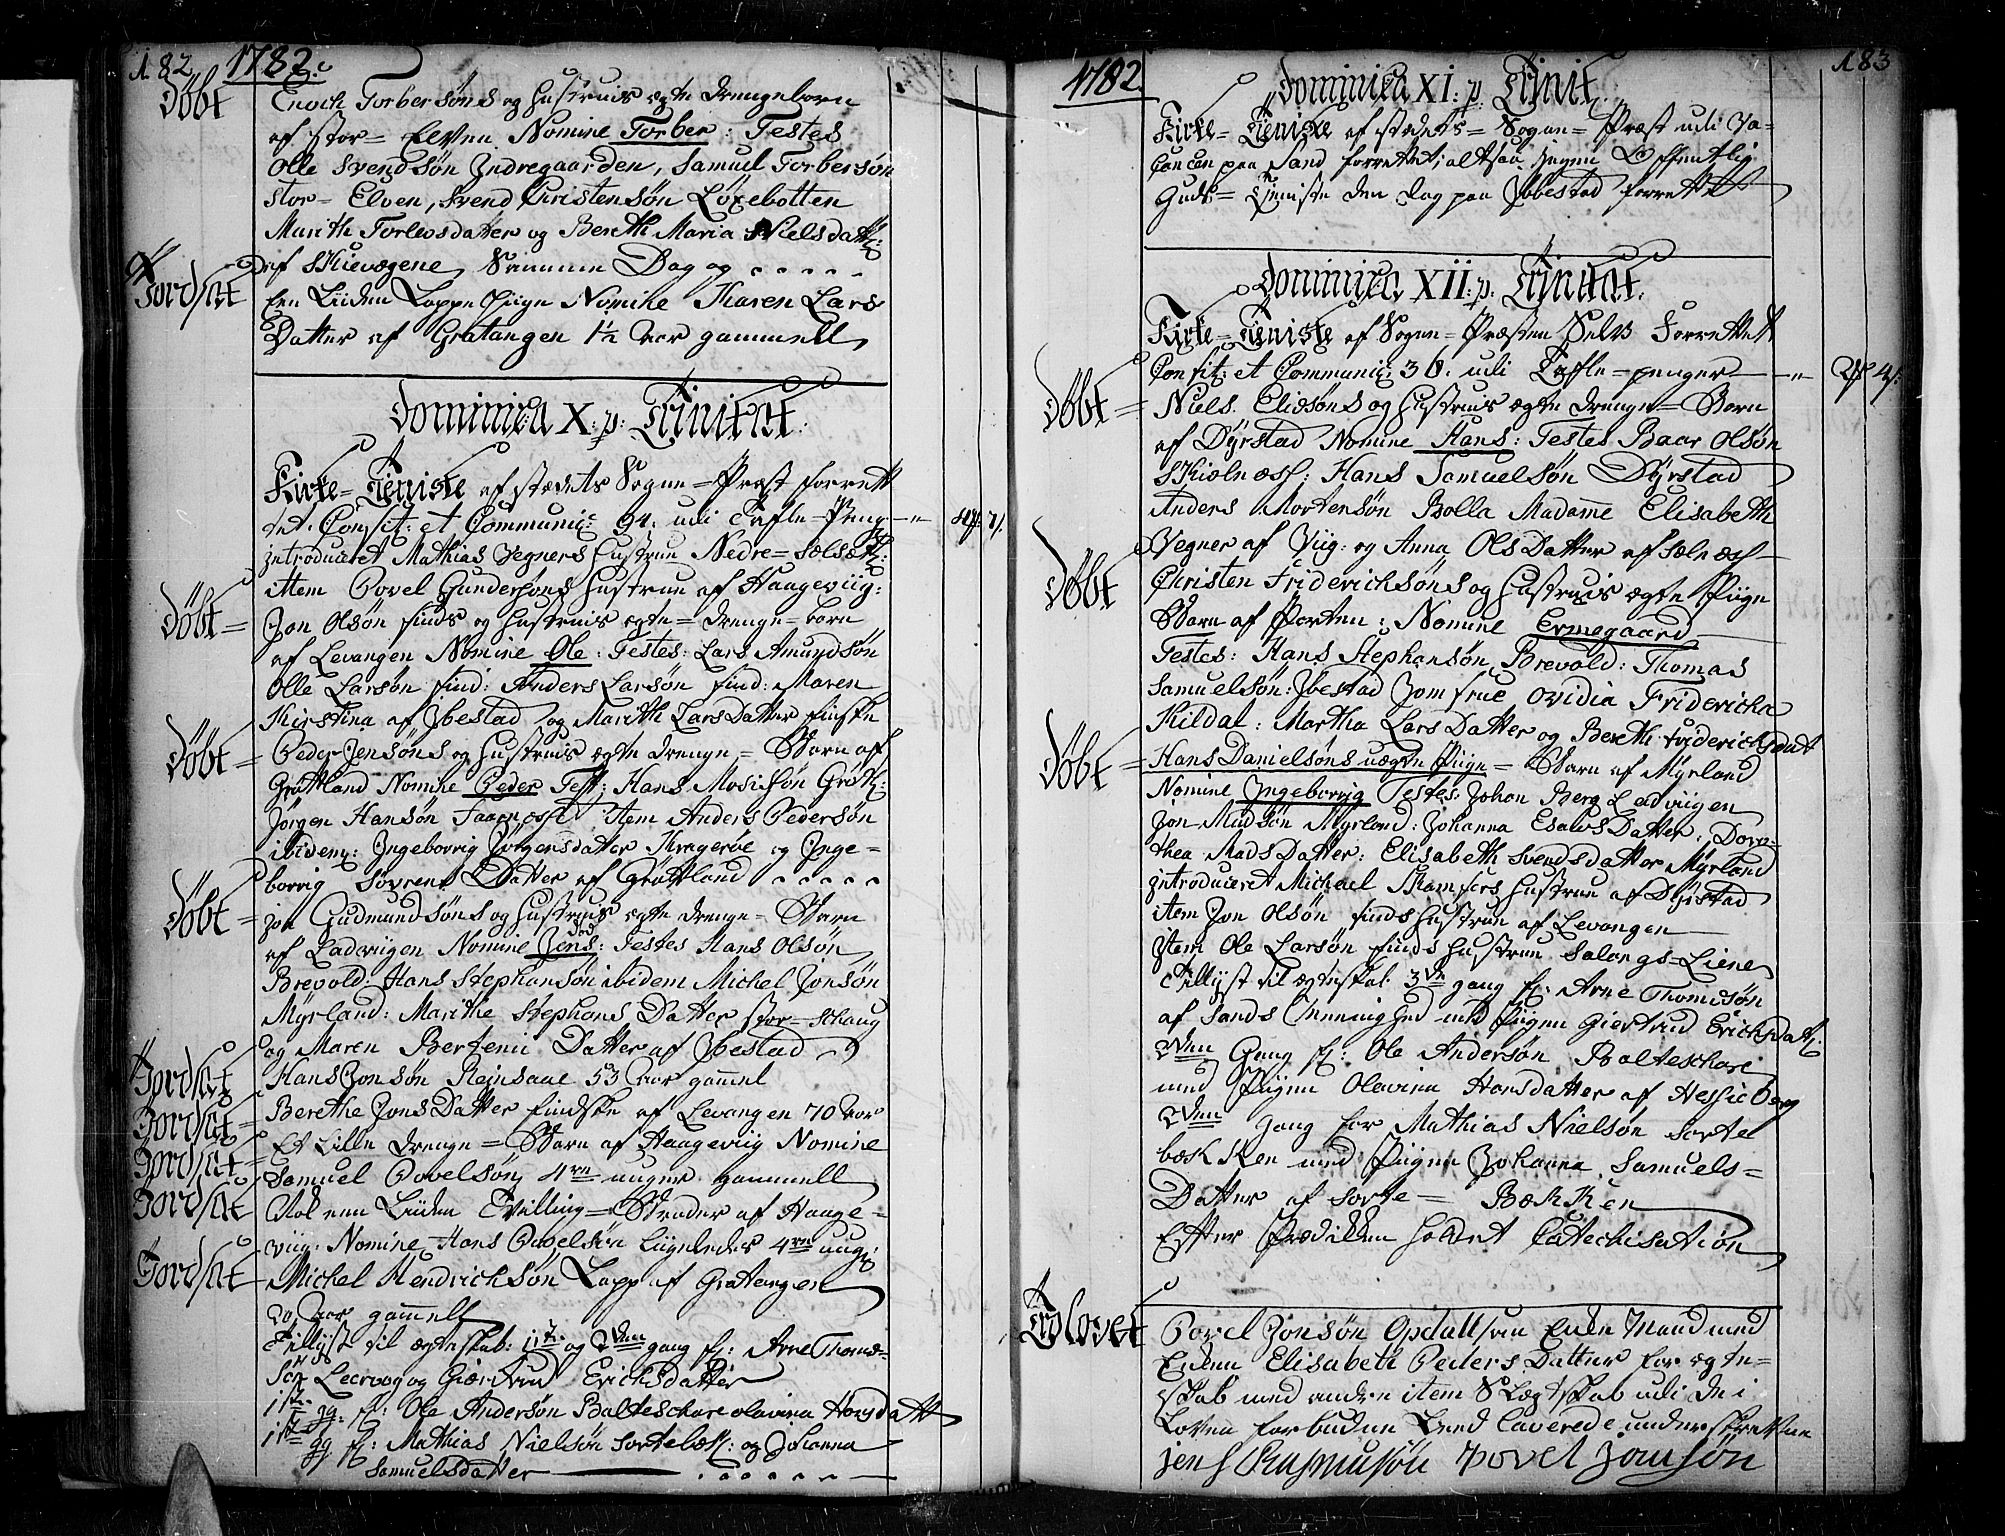 182 1782.
Døbt Enoch Torbersøns og Hustrues ægte Drengeborn
af Stor= Elven Nomine Torber: Testes
Olle Svendsøn Indregaarden, Samuel Torbersøn
Stor= Elven, Svend Christensøn Løxebotten
Marith Torlevsdatter og Bereth Maria Nielsdattr:
af Skievogene, Samme Dag og
Jordsat Een Liiden Lappe Piige Nomine Karen Lars
Datter af Gratangen 1½ Aar gammell
Dominica X: p: Trinitat:
Kirke= Tieniste af Stædets Sogne= Præst forrett
tet. Confit: et Communic: 94. udi Tafle= Peng
Introduceret Mathias Vegners Hustrue Nedre= Sælsæt:
Item Povel Gundersøns Hustrue af Haageviig:
Døbt= Jon Olsøn Finds og Hustrues ægte= Drenge= born
af Levangen Nomine Ole: Testes: Lars Amundsøn
Olle Larsøn Find: Anders Larsøn Find: Maren
Kirstina af Ibestad og Marith LarsDatter Finske
Døbt= Peder Jensøns og Hustrues ægte Drenge= Barn af
Grøttland Nomine Peder Test: Hans Mosisøn Grøtl:
Jørgen Hansøn Item Anders Pedersøn
ibidem: Ingeborrig Jørgensdatter Kragerøe og Inge=
borrig Sørrens Datter af Grøttland
Døbt= Jon Gudmundsøns og Hustrues ægte Drenge= Barn
af Ladeviigen Nomine Jens: Testes Hans Olsøn
Brevold: Hans Stephansøn ibidem Michel Jonsøn
Myrland: Marithe Stephans Datter Stor= Schaug
og Maren Bertenii Datter af Ibestad
Jordsat Hans Jonsøn 53 Aar gamel
Jordsat= Berethe Jons Datter Findske af Levangen 70 Aar
Jordsat= Et Lille Drenge= Barn af Haageviig Nomine
Samuel Povelsøn 4re uuger gammell
Jordsat Nok enn Liiden Tvilling= Broder af Haage=
viig: Nomine Hans Povelsøn Liigeledes 4re uug:
Jordsat Michel Hendrichsøn Lapp af Gratangen
20 Aar gamell
Tillyst til ægteskab: 1ste og 2den gang fr: Arne Thomæ=
Søn og Giertrud ErichsDatter
1ste gg. fr: Ole Andersøn Balteschare Olavina Hansdatt
1ste gg. fr: Mathias Nielsøn Sortebæk: og Johanna
Samuelsdatter
1782. 183
Dominica XI: p: Trinit.
Kirke= Tieniste af Stædets= Sogne= Præst udi Va=
cancen paa Sand forrettet; altsaa ingen Offentlig
Guds= Tieniste den Dag paa Ibbestad forrettet
Dominica XII: p: Trinitat.
Kirke= Tieniste af Sogne= Præsten Selv Forrettett
Confit: et Communic: 36. udi Tafle= penger
Døbt= Niels. Eliesøns og Hustrues ægte Drenge= Barn
af Dyrstad Nomine Hans: Testes Baar Olsøn
Skiølnæss: Hans Samuelsøn Dyrstad
Anders Mortensøn Bolla Madame Elisabeth
Vegner af Viig: og Anna Ols Datter af
Døbt Christen Friderichsøns og Hustrues ægte Piige
Barn af Porten: Nomine Ermegaard
Testes: Hans Stephansøn Brevold: Thomas
Samuelsøn: Ibestad Jomfrue Ovidia Fridericha
Kildal: Martha Lars Datter og Bereth Friderichsdatt
Døbt= Hans Danielsøns uægte Piige= Barn af Myrland
Nomine Ingeborrig Testes: Johan Berg Ladviigen
Jon Madsøn Myrland: Johanna EsawsDatter: Doro=
thea MadsDatter: Elisabeth Svendsdatter Myrland
Introduceret Michael Hustrue af Dyrstad
item Jon Olsøn Finds Hustrue af Levangen
Item Ole Larsøn Finds Hustrue Salangs= Liene
Tillyst til ægteskab 3de gang fr: Arne Thomæsøn
af Sands Meenighed med Piigen Giertrud Erichsdatt:
2den Gang fr: Ole Andersøn Balteschare
med Piigen Olavina Hansdatter af Hessieberg
2den Gang for Mathias Nielsøn Sorte
bækken med Piigen Johanna Samuels=
Datter af Sorte= Bækken
Efter Prædikken Holdet Catechisation
Trolovet Povel Jonsøn Opdall som Enke Mand med
Enken Elisabeth Peders Datter for ægte=
skab med anden item Slægtskab udi de i
Loven forbudne Leed Caverede underskrevne
Jens Rasmusøn Povel Jonsøn